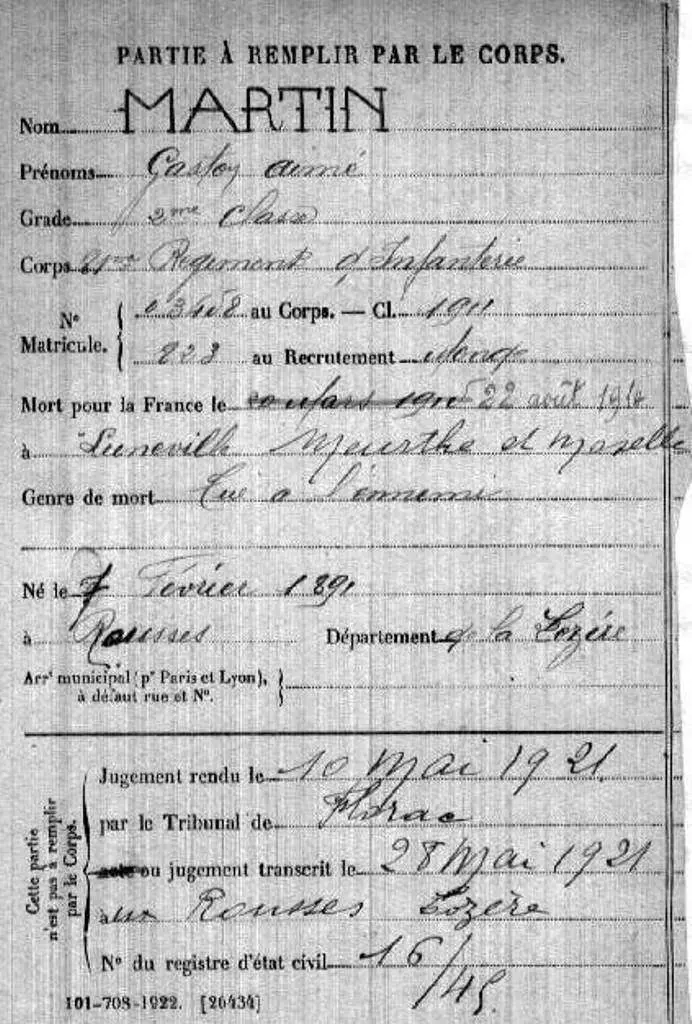 PARTIE À REMPLIR PAR LE CORPS.
Nom MARTIN
Prénoms Gaston aimé
Grade 2me Classe
Corps Régiment d'Infanterie
N° Matricule. { au Corps. — Cl. 1911
223 au Recrutement
Mort pour la France le 22 août 1914
à Luneville Meurthe et Moselle
Genre de mort Tué a l'ennemi
Né le 7 Février 1891
à Rousses Département de la Lozère
Arrt municipal (pr Paris et Lyon), à défaut rue et N°. }
Cette partie n'est pas à remplir par le Corps.
Jugement rendu le 10 Mai 1921
par le Tribunal de Florac
acte ou jugement transcrit le 28 Mai 1921
aux Rousses Lozère
N° du registre d'état civil 16/45
101-708-1922. [26434]